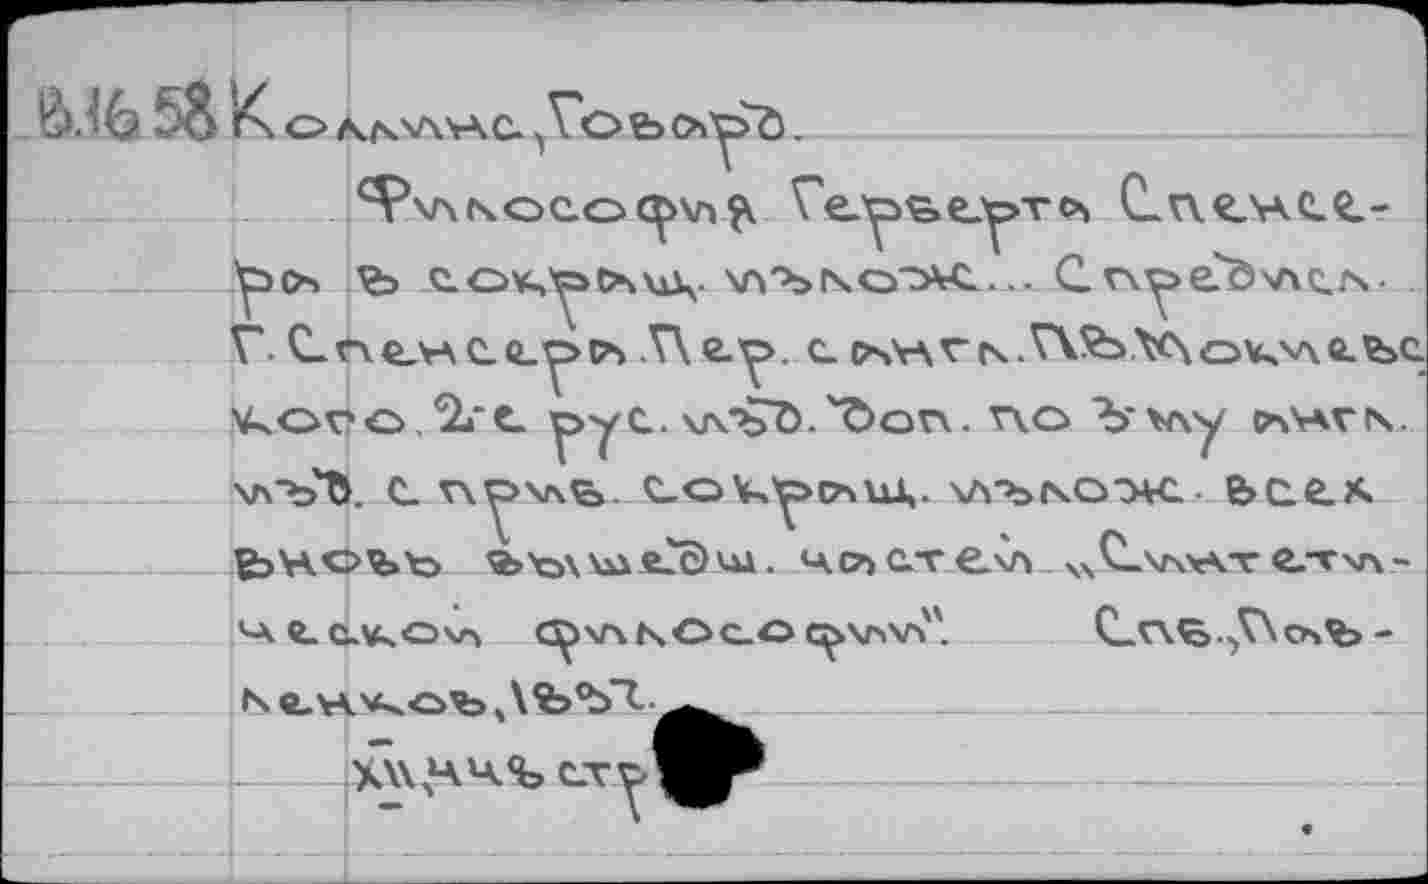 В.16 58 Коллинс, Говард.
Философия Герберта Спенсе-
ра в сокращ. излож... С предисл.
Г. Спенсера. Пер. с англ. П.В.Мокиевс
кого. 2-е рус. изд. Доп. по 3'му англ.
изд. с прив. сокращ. излож. всех
вновь вышедш. частей „Синтети-
ческой философии". Спб., Пав-
ленков, 1897.
XII, 448 стр